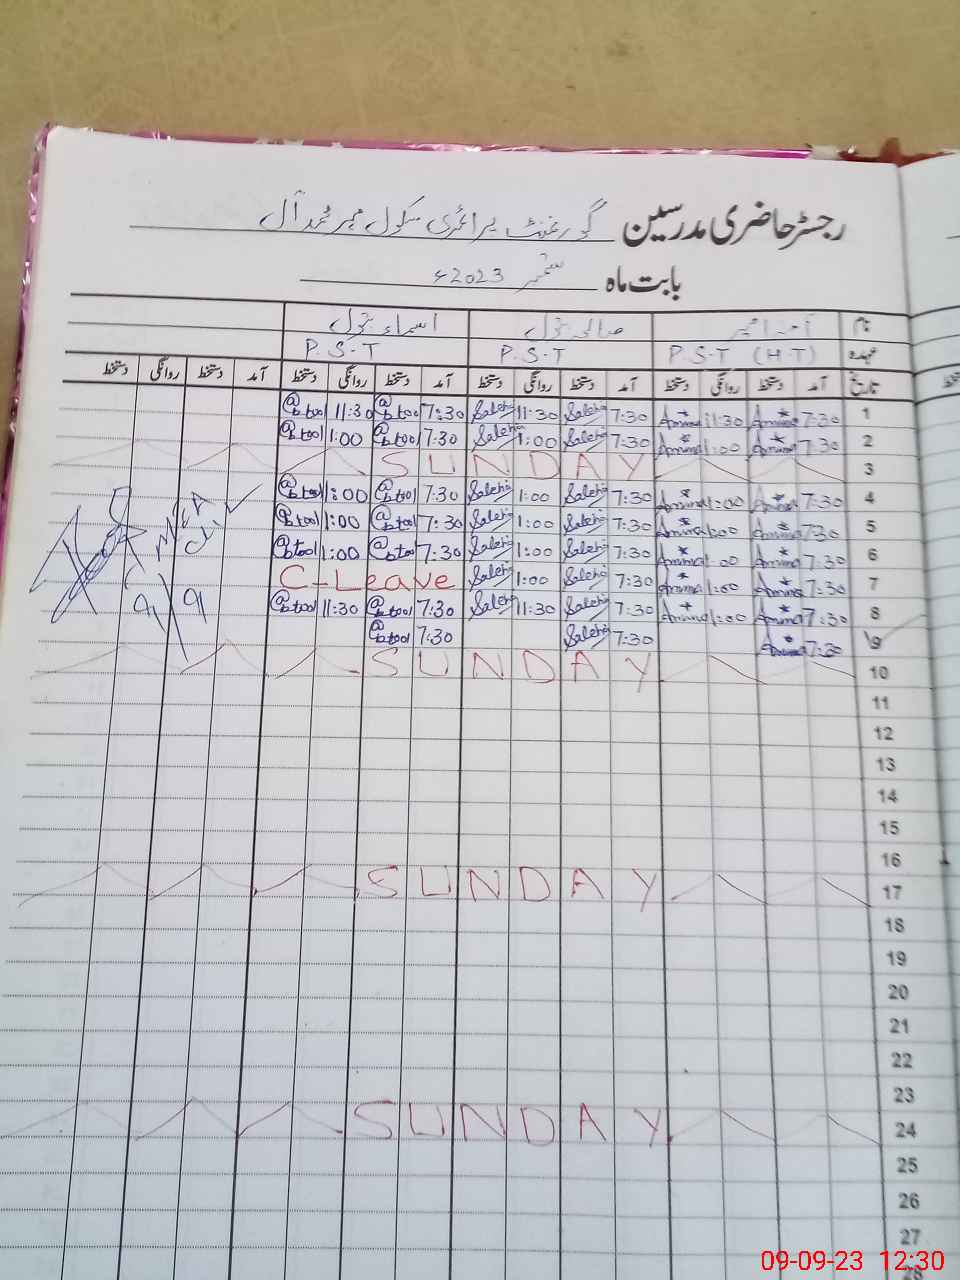 رجسٹر حاضری مدرسین گورنمنٹ پرائمری سکول
بابت ماہ ستمبر 2023ء
نام صالحہ بتول اسماء بتول
عہدہ P.S.T (H.T) P.S.T P.S.T
تاریخ آمد دستخط روانگی دستخط آمد دستخط روانگی دستخط آمد دستخط روانگی دستخط آمد دستخط روانگی دستخط
1 7:30 Amina 11:30 Amina 7:30 Saleha 11:30 Saleha 7:30 @btool 11:30 @btool
2 7:30 Amina 1:00 Amina 7:30 Saleha 1:00 Saleha 7:30 @btool 1:00 @btool
3 SUNDAY
4 7:30 Amina 1:00 Amina 7:30 Saleha 1:00 Saleha 7:30 @btool 1:00 @btool
5 7:30 Amina 1:00 Amina 7:30 Saleha 1:00 Saleha 7:30 @btool 1:00 @btool
6 7:30 Amina 1:00 Amina 7:30 Saleha 1:00 Saleha 7:30 @btool 1:00 @btool
7 7:30 Amina 1:00 Amina 7:30 Saleha 1:00 Saleha C-Leave
8 7:30 Amina 1:00 Amina 7:30 Saleha 11:30 Saleha 7:30 @btool 11:30 @btool
9 7:30 Amina 7:30 Saleha 7:30 @btool
MEA
9/9
10 SUNDAY
11
12
13
14
15
16
17 SUNDAY
18
19
20
21
22
23
24 SUNDAY
25
26
27
28
09-09-23 12:30